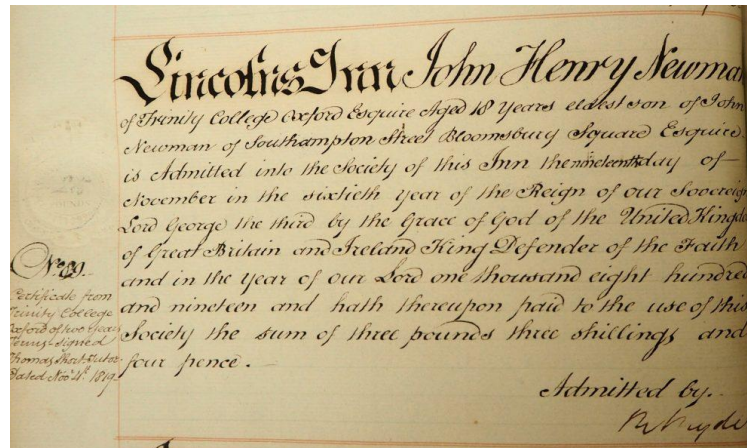 Lincolns Inn John Henry Newman
of Trinity College Oxford Esquire Aged 18 Years eldest son of John
Newman of Southampton Street Bloomsbury Square Esquire
is Admitted into the Society of this Inn the nineteenth day of
November in the sixtieth year of the Reign of our Sovereign
Lord George the third by the Grace of God of the United Kingdo
of Great Britain and Ireland King Defender of the Faith
and in the year of our Lord one thousand eight hundred
and nineteen and hath thereupon paid to the use of this
Society the sum of three pounds three shillings and
four pence.
Admitted by.
No. 39.
Certificate from
Trinity College
Oxford of two Years
Terms signed
Thomas Short Tutor
Dated Nov. 4th. 1819